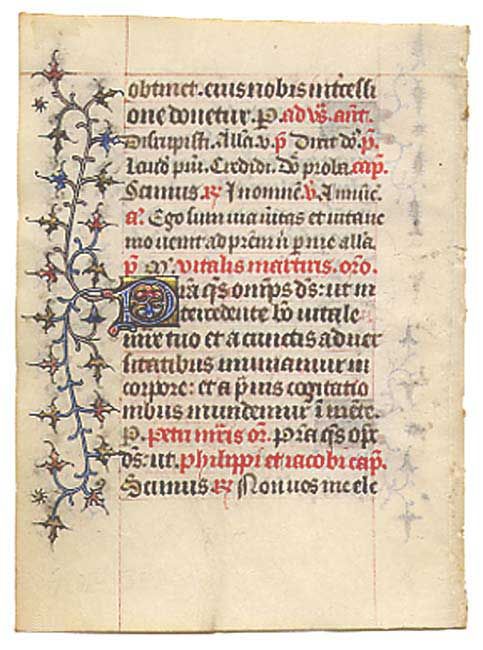 obtinet. eius nobis intcessi
one donetur. P. ad vs. ant.
Disrupisti. Alla. v. p Dixit do. p.
Laud pui. Credidi. Do proba. cap.
Scimus. R. In omne. v.
a. Ego sum uia uitas et uita ne
mo uenit ad prem n p me alla.
p M. vitalis martiris. oro.
Pra qs omps ds: ut in
tercedente bo uitale
mre tuo et a cunctis aduer
sitatibus muniamur in
corpore: et a puis cogitatio
nibus mundemur i mete.
P. petri mris or. Pra qs ops
ds: ut. philippi et iacobi cap.
Scimus. R. Non uos me ele